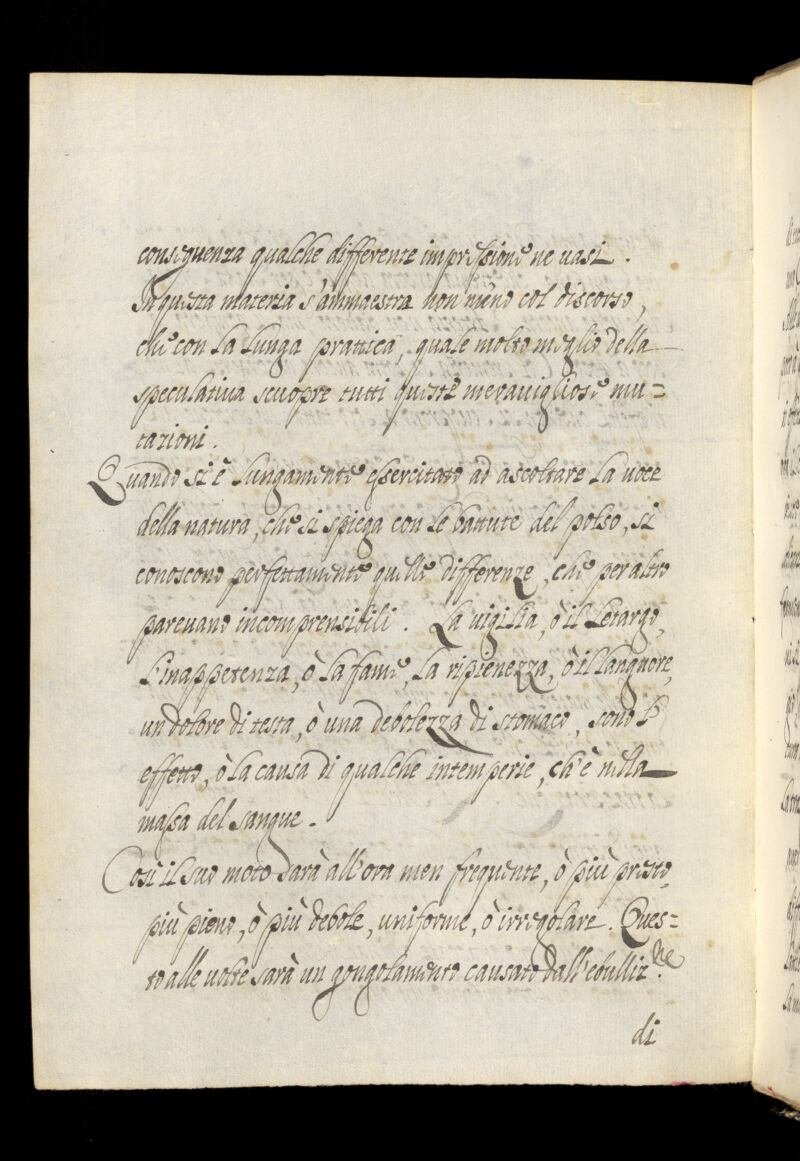 conseguenza qualche differente impressione ne uasi.
In questa materia s'ammaestra non meno col discorso,
che con la lunga prattica, quale molto meglio della
speculatiua scuopre tutti queste merauigliose mu=
tazioni.
Quando si è lungamente essercitato ad ascoltare la uoce
della natura, che si spiega con le battute del polso, si
conoscono perfettamente quelle differenze, che per altro
pareuano incomprensibili. La uigilia, ò il letargo,
l'inappetenza, ò la fame, la ripienezza, ò il languore,
un dolore di testa, ò una debolezza di stomaco, sono l'
effetto, ò la causa di qualche intemperie, ch'è nella
massa del sangue.
Così il suo moto darà all'ora men frequente, ò più presto,
più pieno, ò più debole, uniforme, ò irregolare. Ques=
to alle uolte sarà un gongolamento causato dall'ebulliz.ne
di